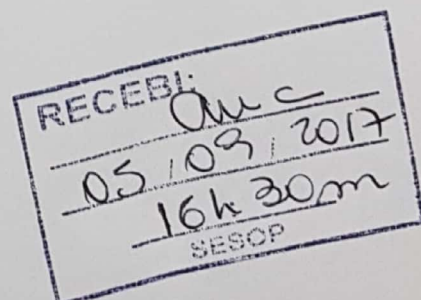 RECEBI:
05 / 09 / 2017
16h 30m
SESOP